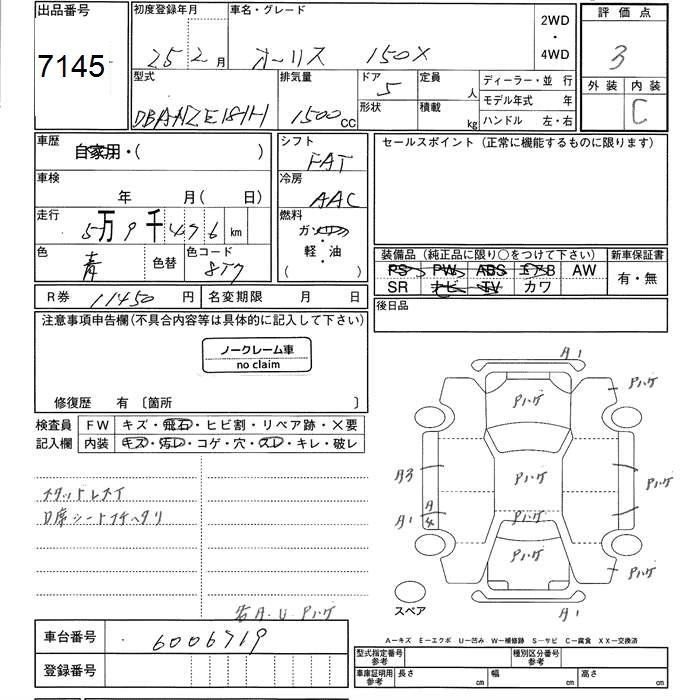 出品番号
7145
初度登録年月
25 2月
車名・グレード
オーリス 150X
2WD
・
4WD
評価点
3
外装 内装
C
型式
DBANZE181H
排気量
1500CC
ドア
5
形状
定員
人
積載
kg
ディーラー・並 行
モデル年式 年
ハンドル 左・右
車歴
自家用・( )
車検
年 月( 日)
走行
5万9千496km
色
青
色替
色コード
8T7
シフト
FAT
冷房
AAC
燃料
ガソリン
・
軽・油
( )
セールスポイント(正常に機能するものに限ります)
装備品(純正品に限り○をつけて下さい)
PS PW ABS エアB AW
SR ナビ TV カワ
新車保証書
有・無
後日品
R券 11450円
名変期限 月 日
注意事項申告欄(不具合内容等は具体的に記入して下さい)
ノークレーム車
no claim
修復歴 有〔箇所 〕
検査員
記入欄
FW キズ・飛石・ヒビ割・リペア跡・×要
内装 キズ・汚レ・コゲ・穴・スレ・キレ・破レ
スタッドレスタイ
D席シートスチヘタリ
右A.U.Pハゲ
A1
Pハゲ
Pハゲ
A3
Pハゲ
Pハゲ
A1
A4
Pハゲ
Pハゲ
Pハゲ
A1
スペア
A-キズ E-エクボ U-凹み W-補修跡 S-サビ C-腐食 XX-交換済
車台番号
6006719
登録番号
型式指定番号
参考
種別区分番号
参考
車庫証明用
参考
長さ cm
幅 cm
高さ cm